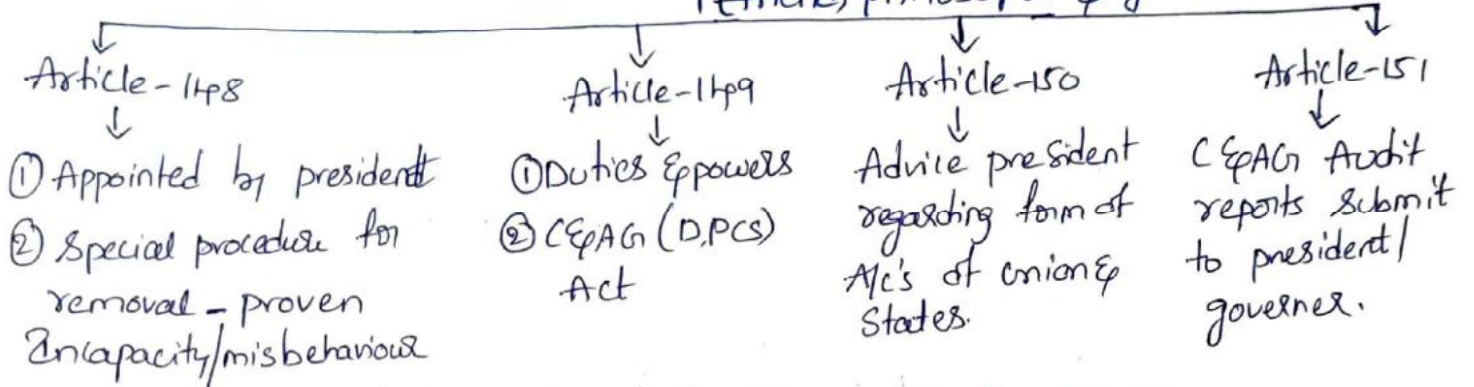 Article-148
① Appointed by president
② Special procedure for
removal - proven
Incapacity/misbehaviour
Article-149
① Duties & powers
② C&AG (D,PCS)
Act
Article-150
Advice president
regarding form of
A/c's of union &
States.
Article-151
C&AG Audit
reports submit
to president/
governer.